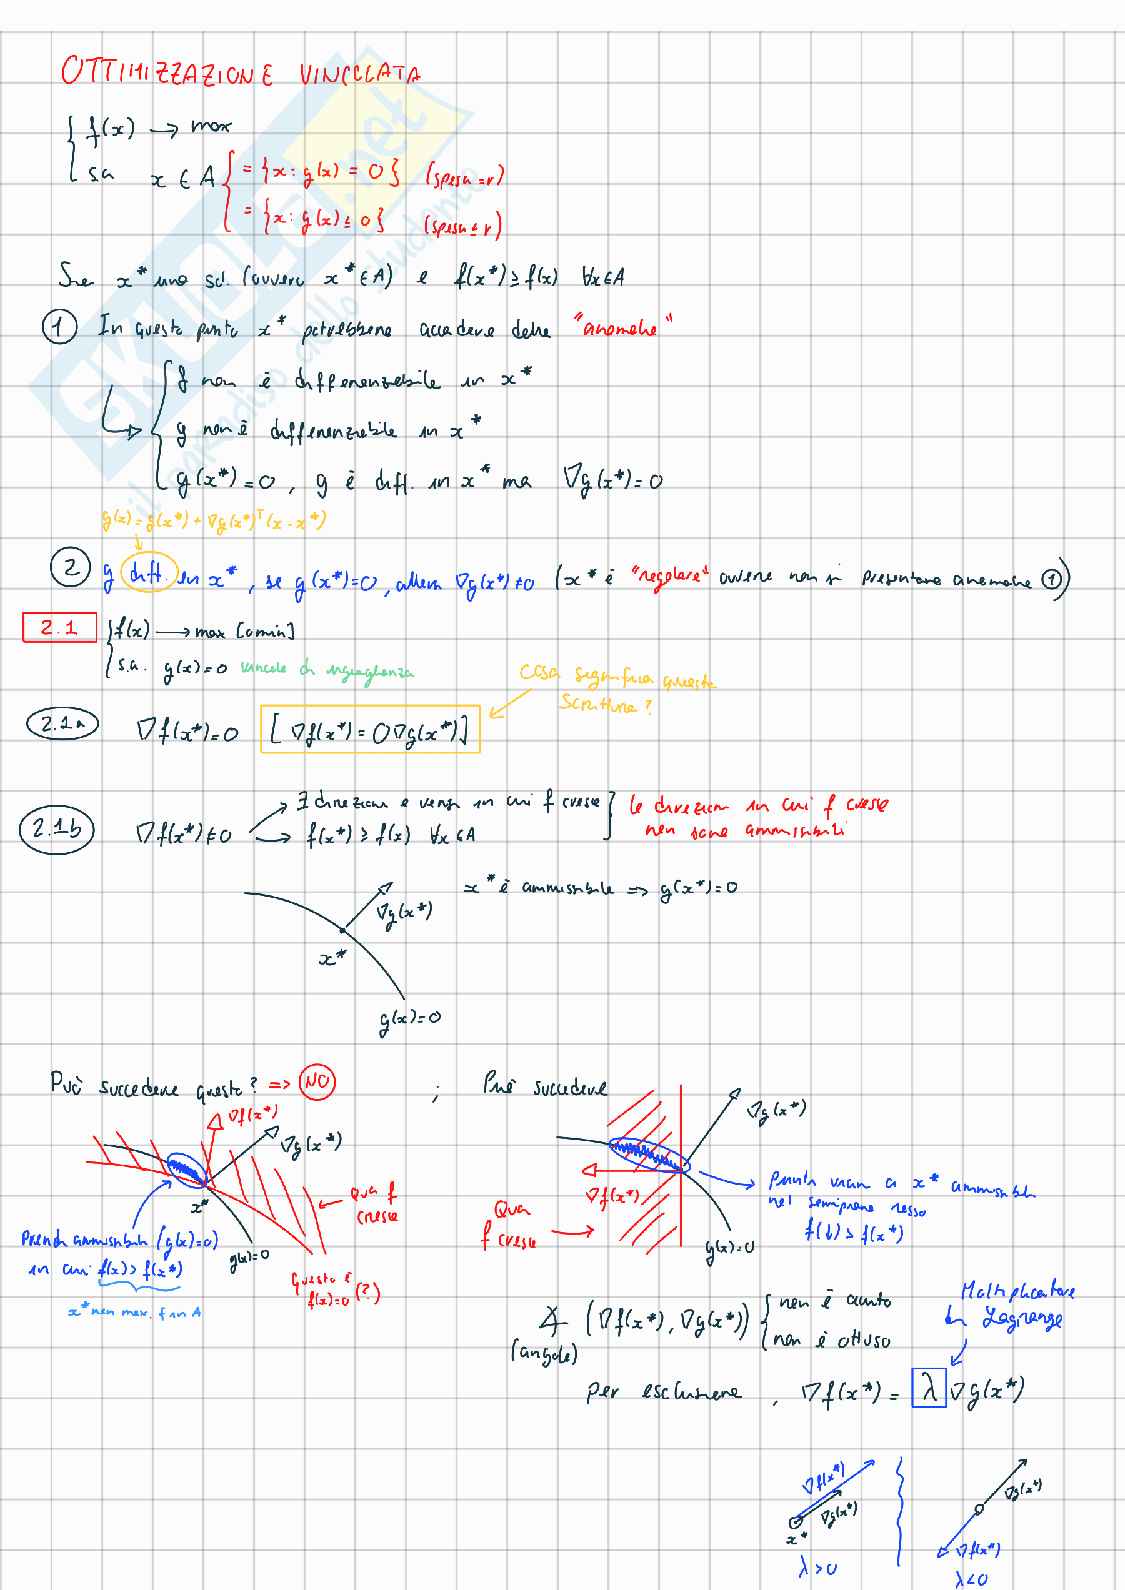 OTTIMIZZAZIONE VINCOLATA
f(x) → max
s.a x ∈ A = {x: g(x) = 0} (spesa = r)
= {x: g(x) ≤ 0} (spesa ≤ r)
Sia x* una sol. (ovvero x* ∈ A) e f(x*) ≥ f(x) ∀x∈A
① In questo punto x* potrebbero accadere delle "anomalie"
f non è differenziabile in x*
g non è differenziabile in x*
g(x*) = 0, g è diff. in x* ma ∇g(x*) = 0
g(x) = g(x*) + ∇g(x*)ᵀ(x - x*)
② g diff. in x*, se g(x*)=0, allora ∇g(x*) ≠ 0 (x* è "regolare" ovvero non si presentano anomalie ①)
2.1 f(x) → max [o min]
s.a. g(x) = 0 vincolo di uguaglianza
Cosa significa questa
scrittura?
2.1a ∇f(x*) = 0 [∇f(x*) = 0∇g(x*)]
2.1b ∇f(x*) ≠ 0 → ∃ direzioni e versi in cui f cresce
→ f(x*) ≥ f(x) ∀x∈A
le direzioni in cui f cresce
non sono ammissibili
x* è ammissibile => g(x*) = 0
∇g(x*)
x*
g(x) = 0
Può succedere questo? => NO ; Può succedere
∇f(x*)
∇g(x*)
x*
Qua f
cresce
g(x)=0
Prendi ammissibili (g(x)=0)
in cui f(x) > f(x*)
x* non max. f in A
Questo è
f(x)=0 (?)
∇g(x*)
∇f(x*)
Qua
f cresce
g(x)=0
Punti vicini a x* ammissibili
nel semipiano rosso
f(·) > f(x*)
∡ (∇f(x*), ∇g(x*)) non è acuto
non è ottuso
(angolo)
Moltiplicatore
di Lagrange
per esclusione, ∇f(x*) = λ ∇g(x*)
∇f(x*)
∇g(x*)
x*
λ > 0
∇g(x*)
∇f(x*)
λ < 0